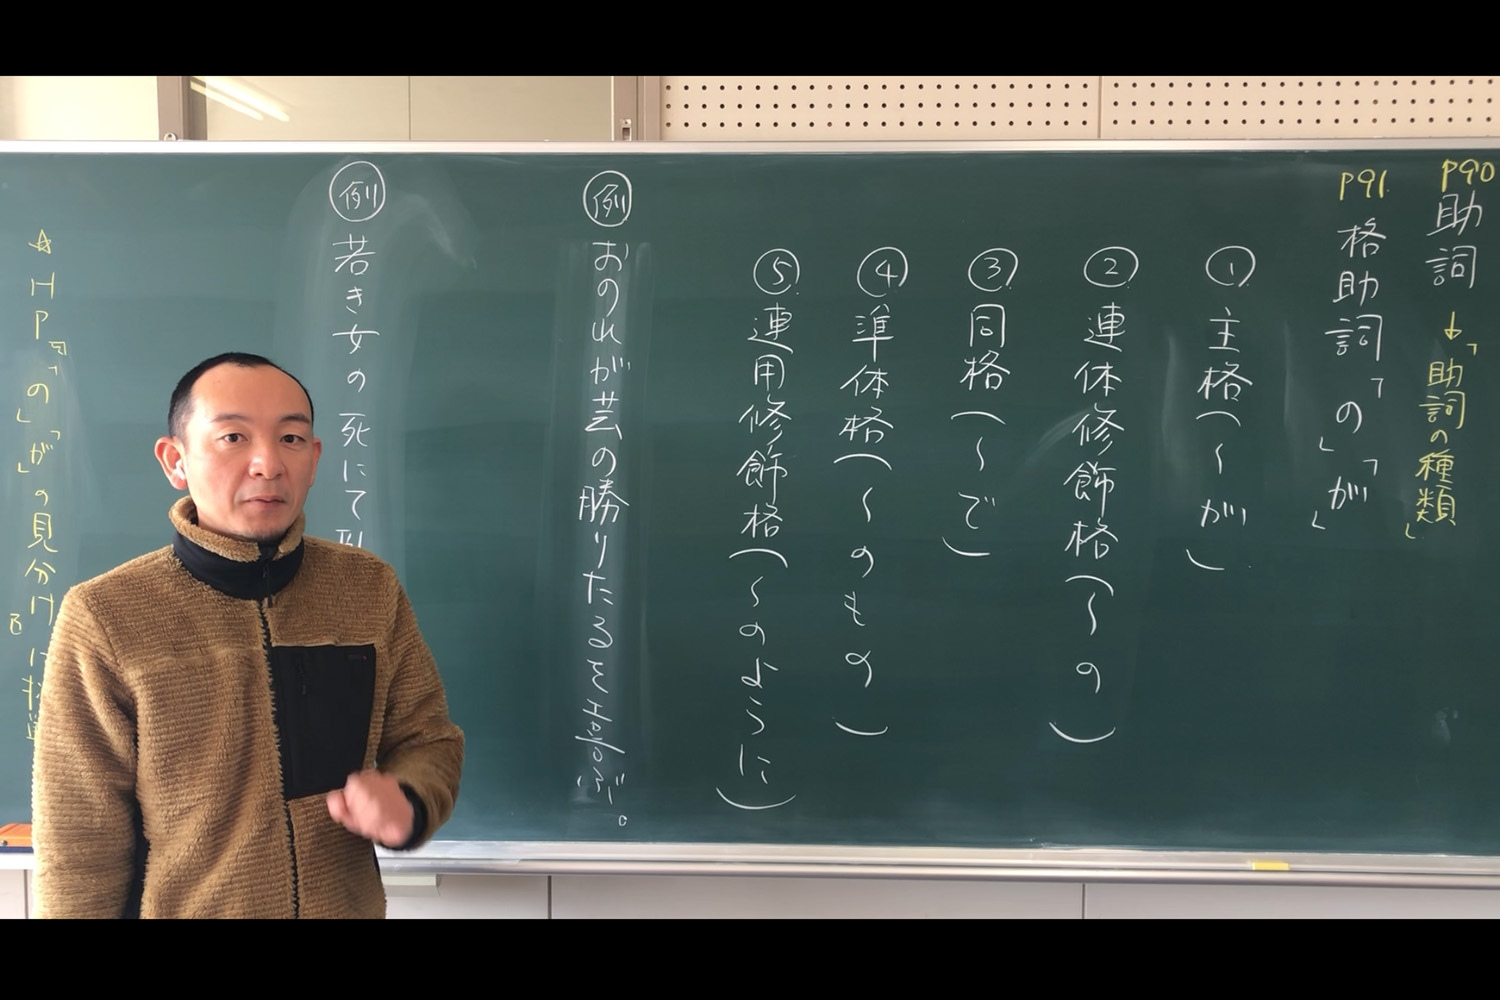 P90
助詞 ↓「助詞の種類」
P91
格助詞「の」「が」
① 主格（〜が）
② 連体修飾格（〜の）
③ 同格（〜で）
④ 準体格（〜のもの）
⑤ 連用修飾格（〜のように）
例 おのれが芸の勝りたるを喜ぶ。
例 若き女の死にて
☆HP 「の」「が」の見分け